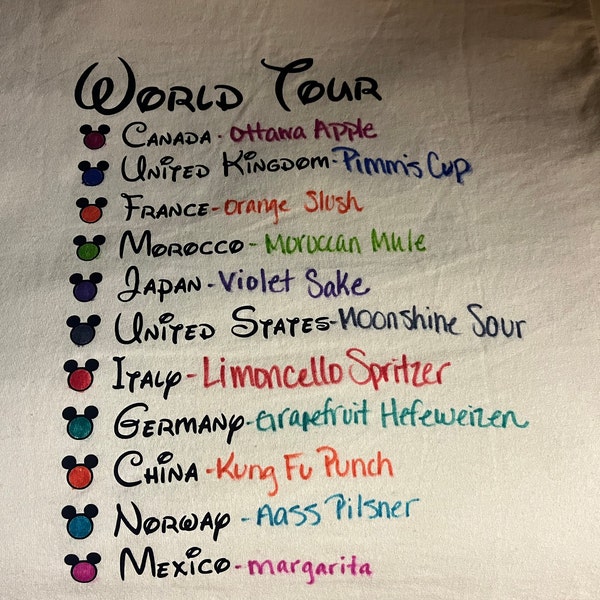 World Tour
Canada - Ottawa Apple
United Kingdom - Pimm's Cup
France - Orange Slush
Morocco - Moroccan Mule
Japan - Violet Sake
United States - Moonshine Sour
Italy - Limoncello Spritzer
Germany - Grapefruit Hefeweizen
China - Kung Fu Punch
Norway - Aass Pilsner
Mexico - margarita